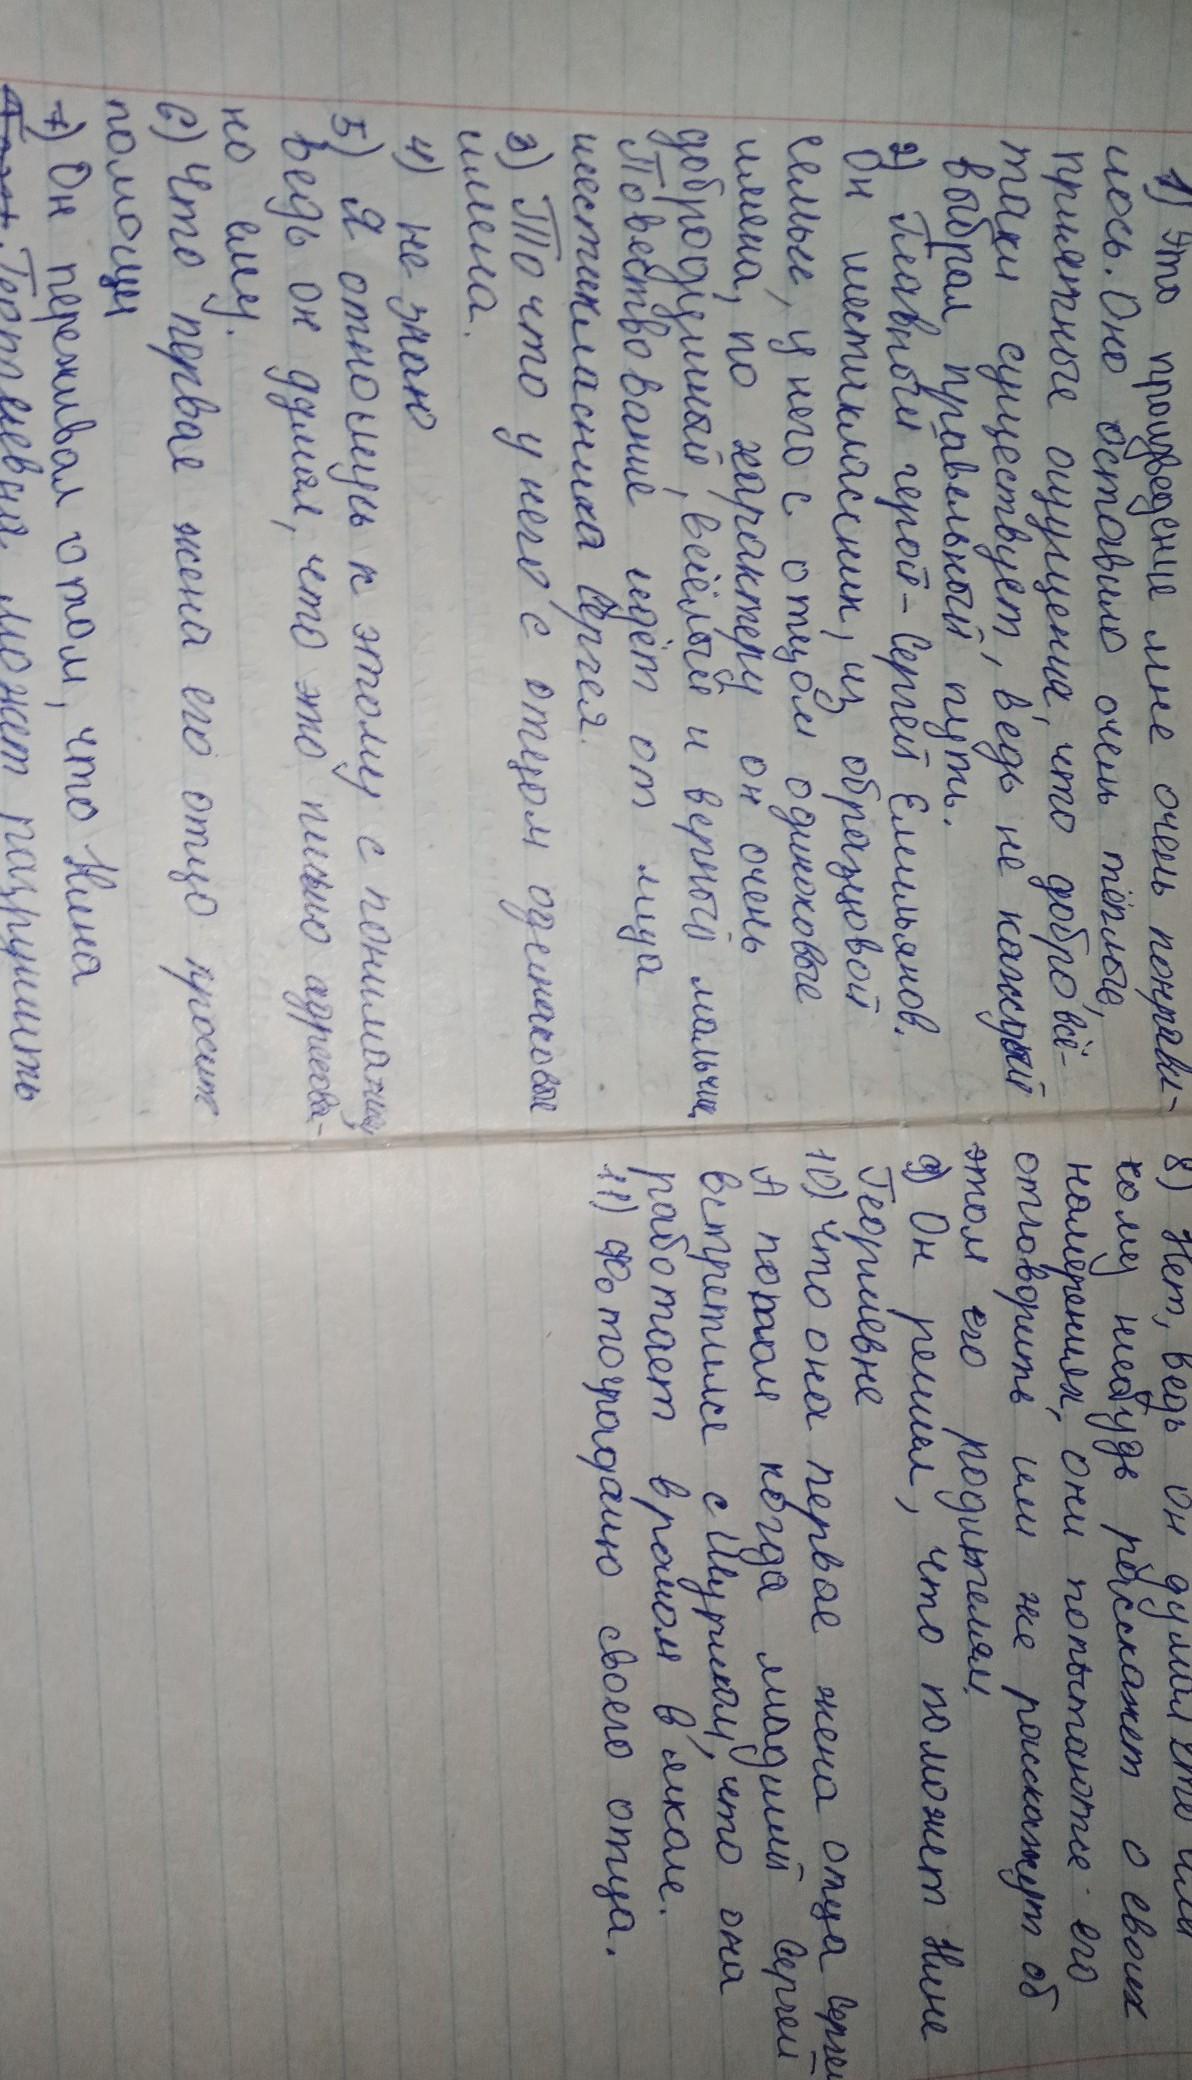 1) Это произведение мне очень понрави-
лось. Оно оставило очень тёплые,
приятные ощущение, что добро всё-
таки существует, ведь не каждый
выбрал правельный путь.
2) Главный герой - Сергей Емельянов.
Он шестиклассник, из образцовой
семьи, у него с отцом одиноковые
имена, по характеру он очень
добродушный, весёлый и верный мальчик
Повествование идёт от лица
шестиклассника Сергея.
3) То что у него с отцом одинаковые
имена.
4) не знаю
5) Я отношусь к этому с понимание,
ведь он думал, что это писмо адресова-
но ему.
6) Что первая жена его отца просит
помощи
7) Он переживал о том, что Нина
Георгиевна может разрушить
8) Нет, ведь он думал что или
кому небудь расскажет о своих
намерениях, они попытаются его
отговорить или же расскажут об
этом его родителям.
9) Он решил, что поможет Нине
Георгиевне
10) Что она первая жена отца Сергея
А потом когда младший Сергей
встретился с Шуриком, что она
работает врачом в школе.
11) Фотографию своего отца.